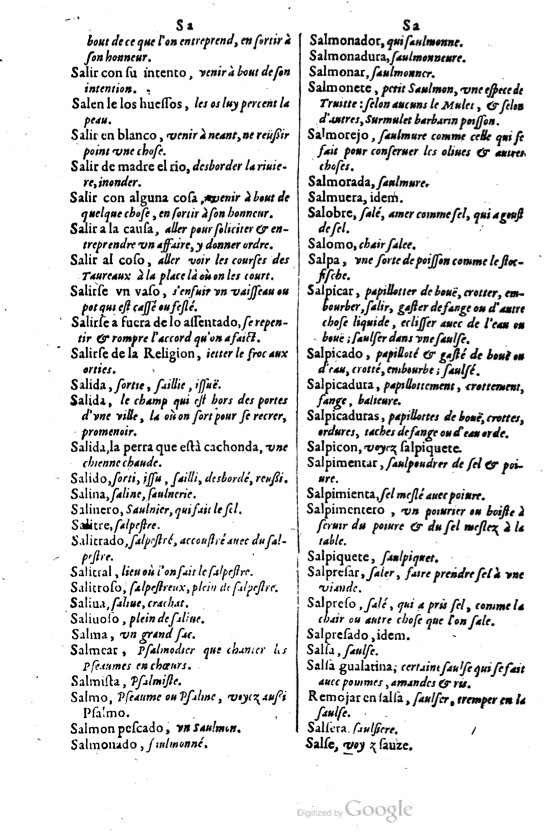 Sa
bout de ce que l'on entreprend, en sortir à
son honneur.
Salir con su intento, venir à bout de son
intention.
Salen le los huessos, les os luy percent la
peau.
Salir en blanco, venir à neant, ne reüssir
point vne chose.
Salir de madre el rio, desborder la riuie-
re, inonder.
Salir con alguna cosa, venir à bout de
quelque chose, en sortir à son honneur.
Salir a la causa, aller pour soliciter & en-
treprendre vn affaire, y donner ordre.
Salir al coso, aller voir les courses des
Taureaux à la place là où on les court.
Salirse vn vaso, s'enfuir vn vaisseau ou
pot qui est cassé ou feslé.
Salirse a fuera de lo assentado, se repen-
tir & rompre l'accord qu'on a faict.
Salirse de la Religion, ietter le froc aux
orties.
Salida, sortie, saillie, issuë.
Salida, le champ qui est hors des portes
d'vne ville, la où on sort pour se recrer,
promenoir.
Salida, la perra que està cachonda, vne
chienne chaude.
Salido, sorti, issu, sailli, desbordé, reussi.
Salina, saline, saulnerie.
Salinero, Saulnier, qui fait le sel.
Salitre, salpestre.
Salitrado, salpestré, accoustré auec du sal-
pestre.
Salitral, lieu où l'on fait le salpestre.
Salitroso, salpestreux, plein de salpestre.
Saliua, saliue, crachat.
Saliuoso, plein de saliue.
Salma, vn grand sac.
Salmear, Psalmodier que chanter les
Pseaumes en chœurs.
Salmista, Psalmiste.
Salmo, Pseaume ou Psalme, voyez aussi
Psalmo.
Salmon pescado, vn Saulmon.
Salmonado, saulmonné.
Sa
Salmonador, qui saulmonne.
Salmonadura, saulmonneure.
Salmonar, saulmonner.
Salmonete, petit Saulmon, vne espece de
Truitte : selon aucuns le Mulet, & selon
d'autres, Surmulet barbarin poisson.
Salmorejo, saulmure comme celle qui se
fait pour conseruer les oliues & autres
choses.
Salmorada, saulmure.
Salmuera, idem.
Salobre, salé, amer comme sel, qui a goust
de sel.
Salomo, chair salee.
Salpa, vne sorte de poisson comme le stoc-
fische.
Salpicar, papillotter de bouë, crotter, em-
bourber, salir, gaster de fange ou d'autre
chose liquide, eclisser auec de l'eau ou
bouë ; saulser dans vne saulse.
Salpicado, papilloté & gasté de bouë ou
d'eau, crotté, embourbe ; saulsé.
Salpicadura, papillottement, crottement,
fange, balieure.
Salpicaduras, papillottes de bouë, crottes,
ordures, taches de fange ou d'eau orde.
Salpicon, voyez salpiquete.
Salpimentar, saulpoudrer de sel & poi-
ure.
Salpimienta, sel meslé auec poiure.
Salpimentero, vn poiurier ou boiste à
seruir du poiure & du sel meslez à la
table.
Salpiquete, saulpiquet.
Salpresar, saler, faire prendre sel à vne
viande.
Salpreso, salé, qui a pris sel, comme la
chair ou autre chose que l'on sale.
Salpresado, idem.
Salsa, saulse.
Salsa gualatina; certaine saulse qui se fait
auec pommes, amandes & ris.
Remojar en salsa, saulser, tremper en la
saulse.
Salsera, saulsiere.
Salse, voyez sauze.
Digitized by Google